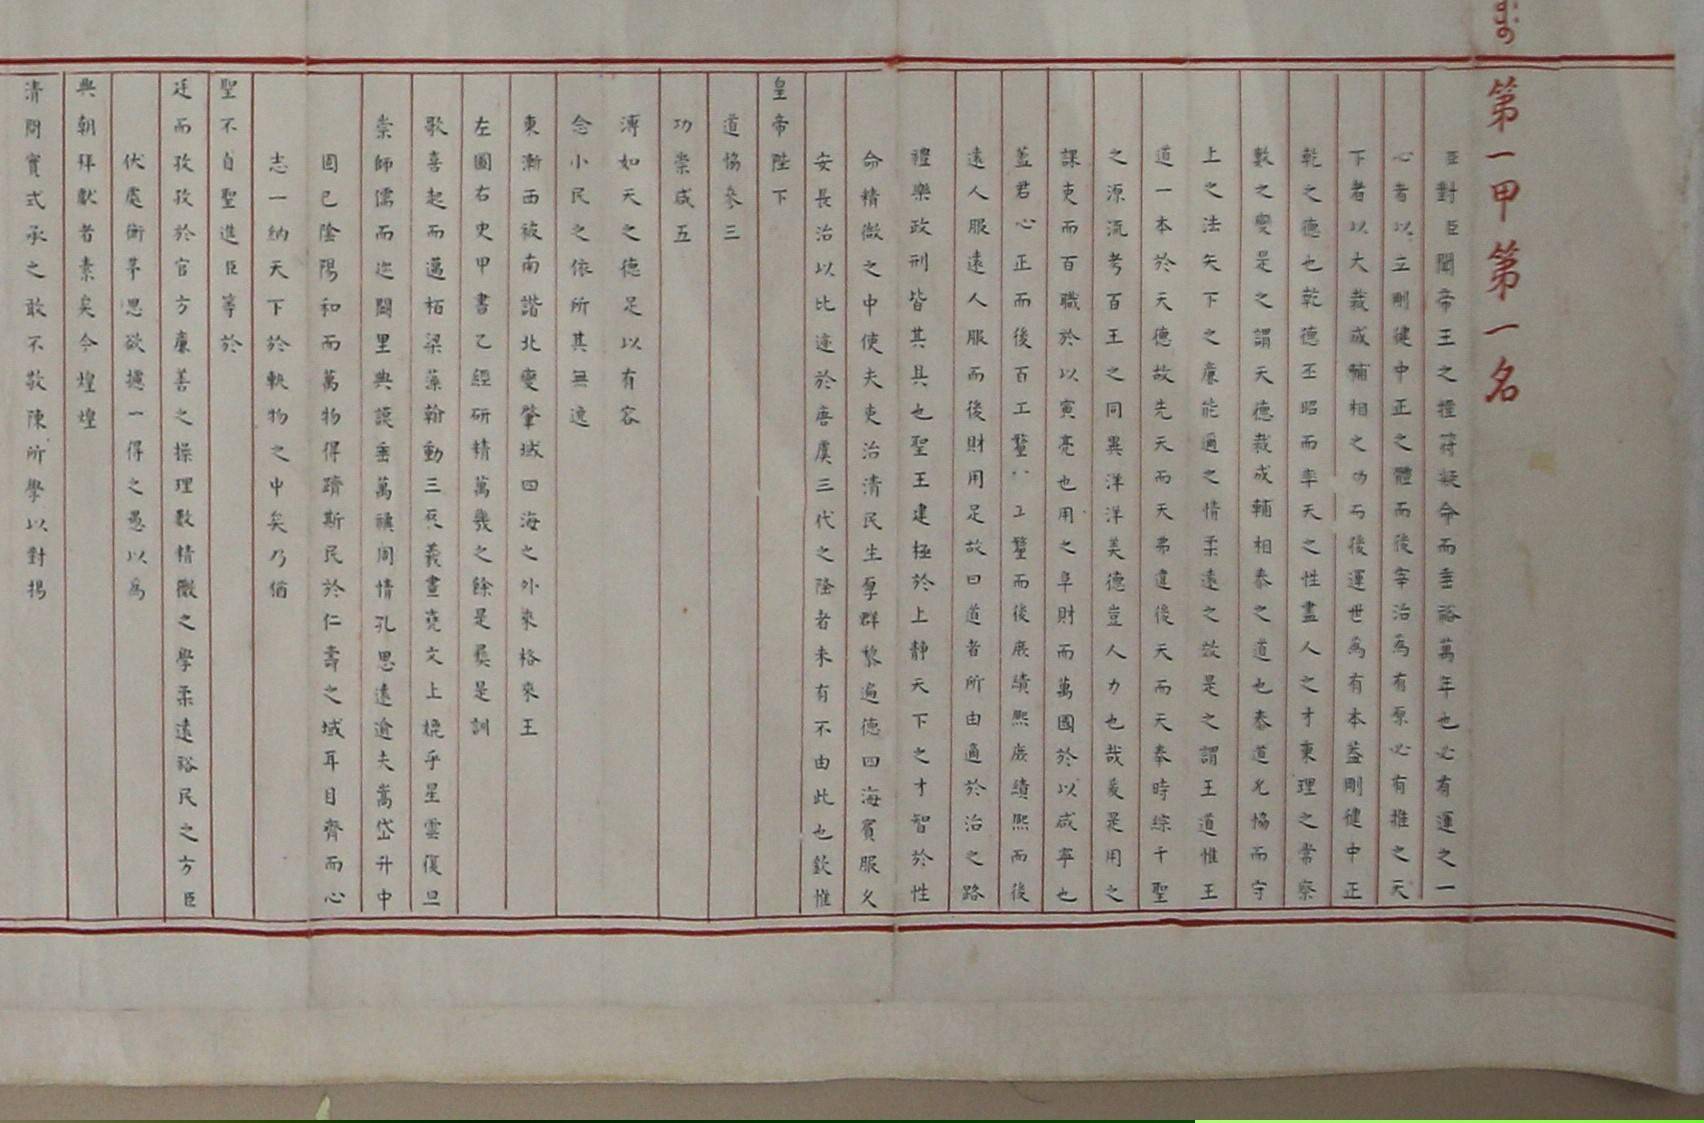 第一甲第一名
臣對臣聞帝王之握符凝命而垂裕萬年也必有運之一
心者以立剛健中正之體而後宰治為有原必有推之天
下者以大裁成輔相之功而後運世為有本蓋剛健中正
乾之德也乾德丕昭而率天之性盡人之才東理之常察
數之變是之謂天德裁成輔相泰之道也泰道允協而守
上之法矢下之廉能通之情柔遠之效是之謂王道惟王
道一本於天德故先天而天弗違後天而天奉時綜千聖
之源流考百王之同異洋洋美德豈人力也哉爰是用之
課吏而百職於以寅亮也用之阜財而萬國於以咸寧也
蓋君心正而後百工釐百工釐而後庶績熙庶績熙而後
遠人服遠人服而後財用足故曰道者所由適於治之路
禮樂政刑皆其具也聖王建極於上靜天下之才智於性
命精微之中使夫吏治清民生厚群黎遍德四海賓服久
安長治以比迹於唐虞三代之隆者未有不由此也欽惟
皇帝陛下
道協參三
功崇咸五
溥如天之德足以有容
念小民之依所其無逸
東漸西被南諧北變肇域四海之外來格來王
左圖右史甲書乙經研精萬幾之餘是彝是訓
歌喜起而邁柏梁藻翰動三辰羲畫堯文上媲乎星雲復旦
崇師儒而巡闕里典謨垂萬禩周情孔思遠逾夫嵩岱升中
固已陰陽和而萬物得躋斯民於仁壽之域耳目齊而心
志一納天下於軌物之中矣乃猶
聖不自聖進臣等於
廷而孜孜於官方廉善之操理數精微之學柔遠裕民之方臣
伏處衡茅思欲攄一得之愚以為
興朝拜獻者素矣今煌煌
清問實式承之敢不敬陳所學以對揚